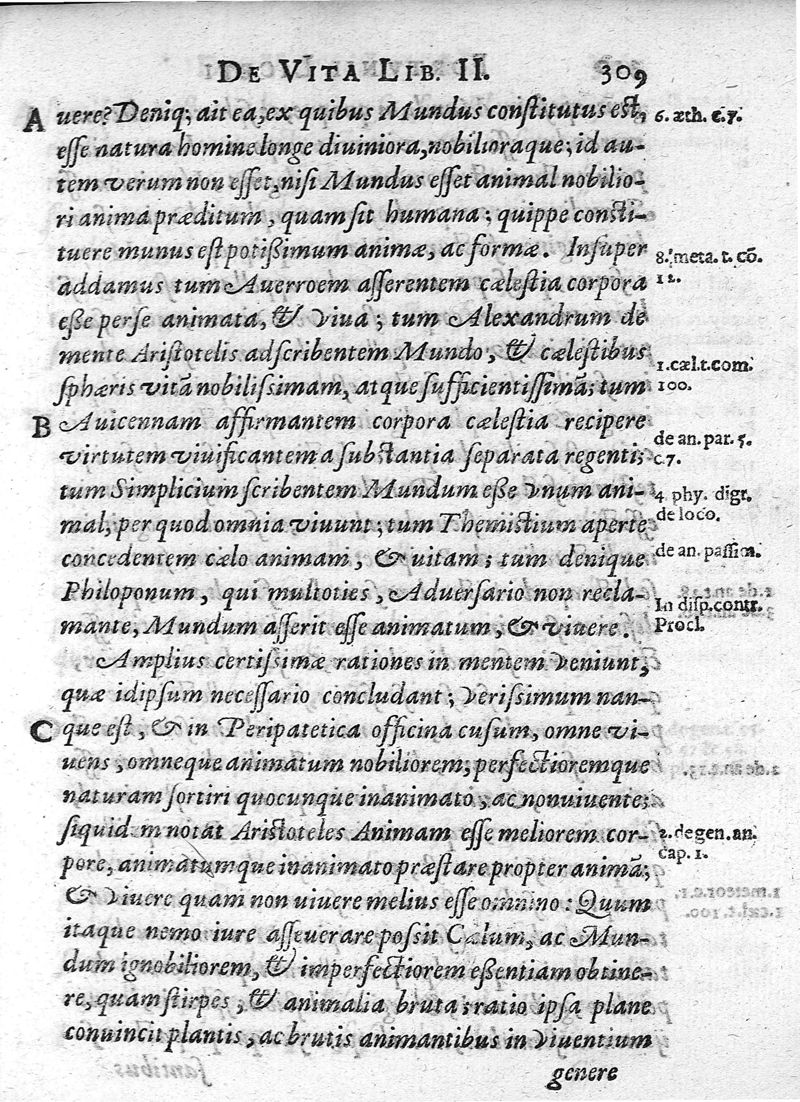 DE VITA LIB. II. 309
A uere? Deniq; ait ea, ex quibus Mundus constitutus est, 6. æth. c. 7.
esse natura homine longe diuiniora, nobilioraque; id au-
tem verum non esset, nisi Mundus esset animal nobilio-
ri anima præditum, quam sit humana; quippe consti-
tuere munus est potißimum animæ, ac formæ. Insuper 8. meta. t. cō.
addamus tum Auerroem asserentem cælestia corpora 12.
eße per se animata, & viua; tum Alexandrum de
mente Aristotelis adscribentem Mundo, & cælestibus 1. cæl. t. com.
sphæris vitā nobilissimam, atque sufficientissimā; tum 100.
B Auicennam affirmantem corpora cælestia recipere
virtutem viuificantem a substantia separata regenti; de an. par. 5.
tum Simplicium scribentem Mundum eße vnum ani- c. 7.
mal, per quod omnia viuunt; tum Themistium aperte 4. phy. digr.
concedentem cælo animam, & uitam; tum denique de loco.
Philoponum, qui multoties, Aduersario non recla- de an. passim.
mante, Mundum asserit esse animatum, & viuere. In disp. contr.
Procl.
Amplius certissimæ rationes in mentem veniunt,
quæ idipsum necessario concludant; verissimum nan-
C que est, & in Peripatetica officina cusum, omne vi-
uens, omneque animatum nobiliorem, perfectioremque
naturam sortiri quocunque inanimato, ac non uiuente;
siquid m notat Aristoteles Animam esse meliorem cor- 2. de gen. an.
pore, animatumque inanimato præstare propter animā; cap. 1.
& viuere quam non uiuere melius esse omnino: Quum
itaque nemo iure asseuerare possit Cælum, ac Mun-
dum ignobiliorem, & imperfectiorem eßentiam obtine-
re, quam stirpes, & animalia bruta; ratio ipsa plane
conuincit plantis, ac brutis animantibus in viuentium
genere